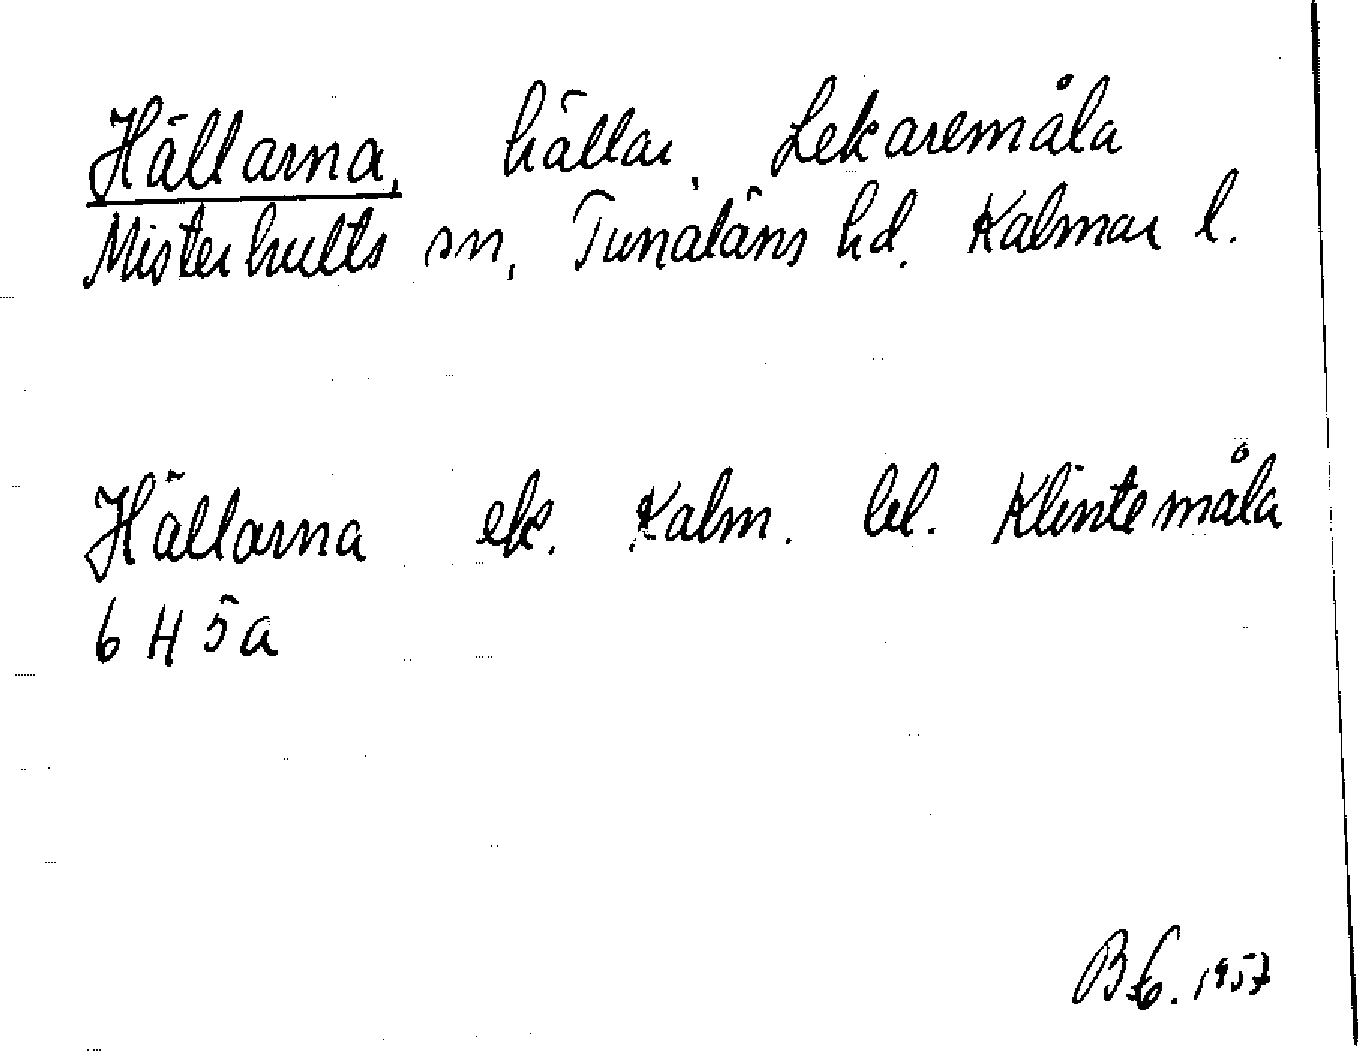 Hällarna, hällar, Lekaremåla
Misterhults sn, Tunaläns hd. Kalmar l.
Hällarna ek. Kalm. bl. Klintemåla
6 H 5 a
1957